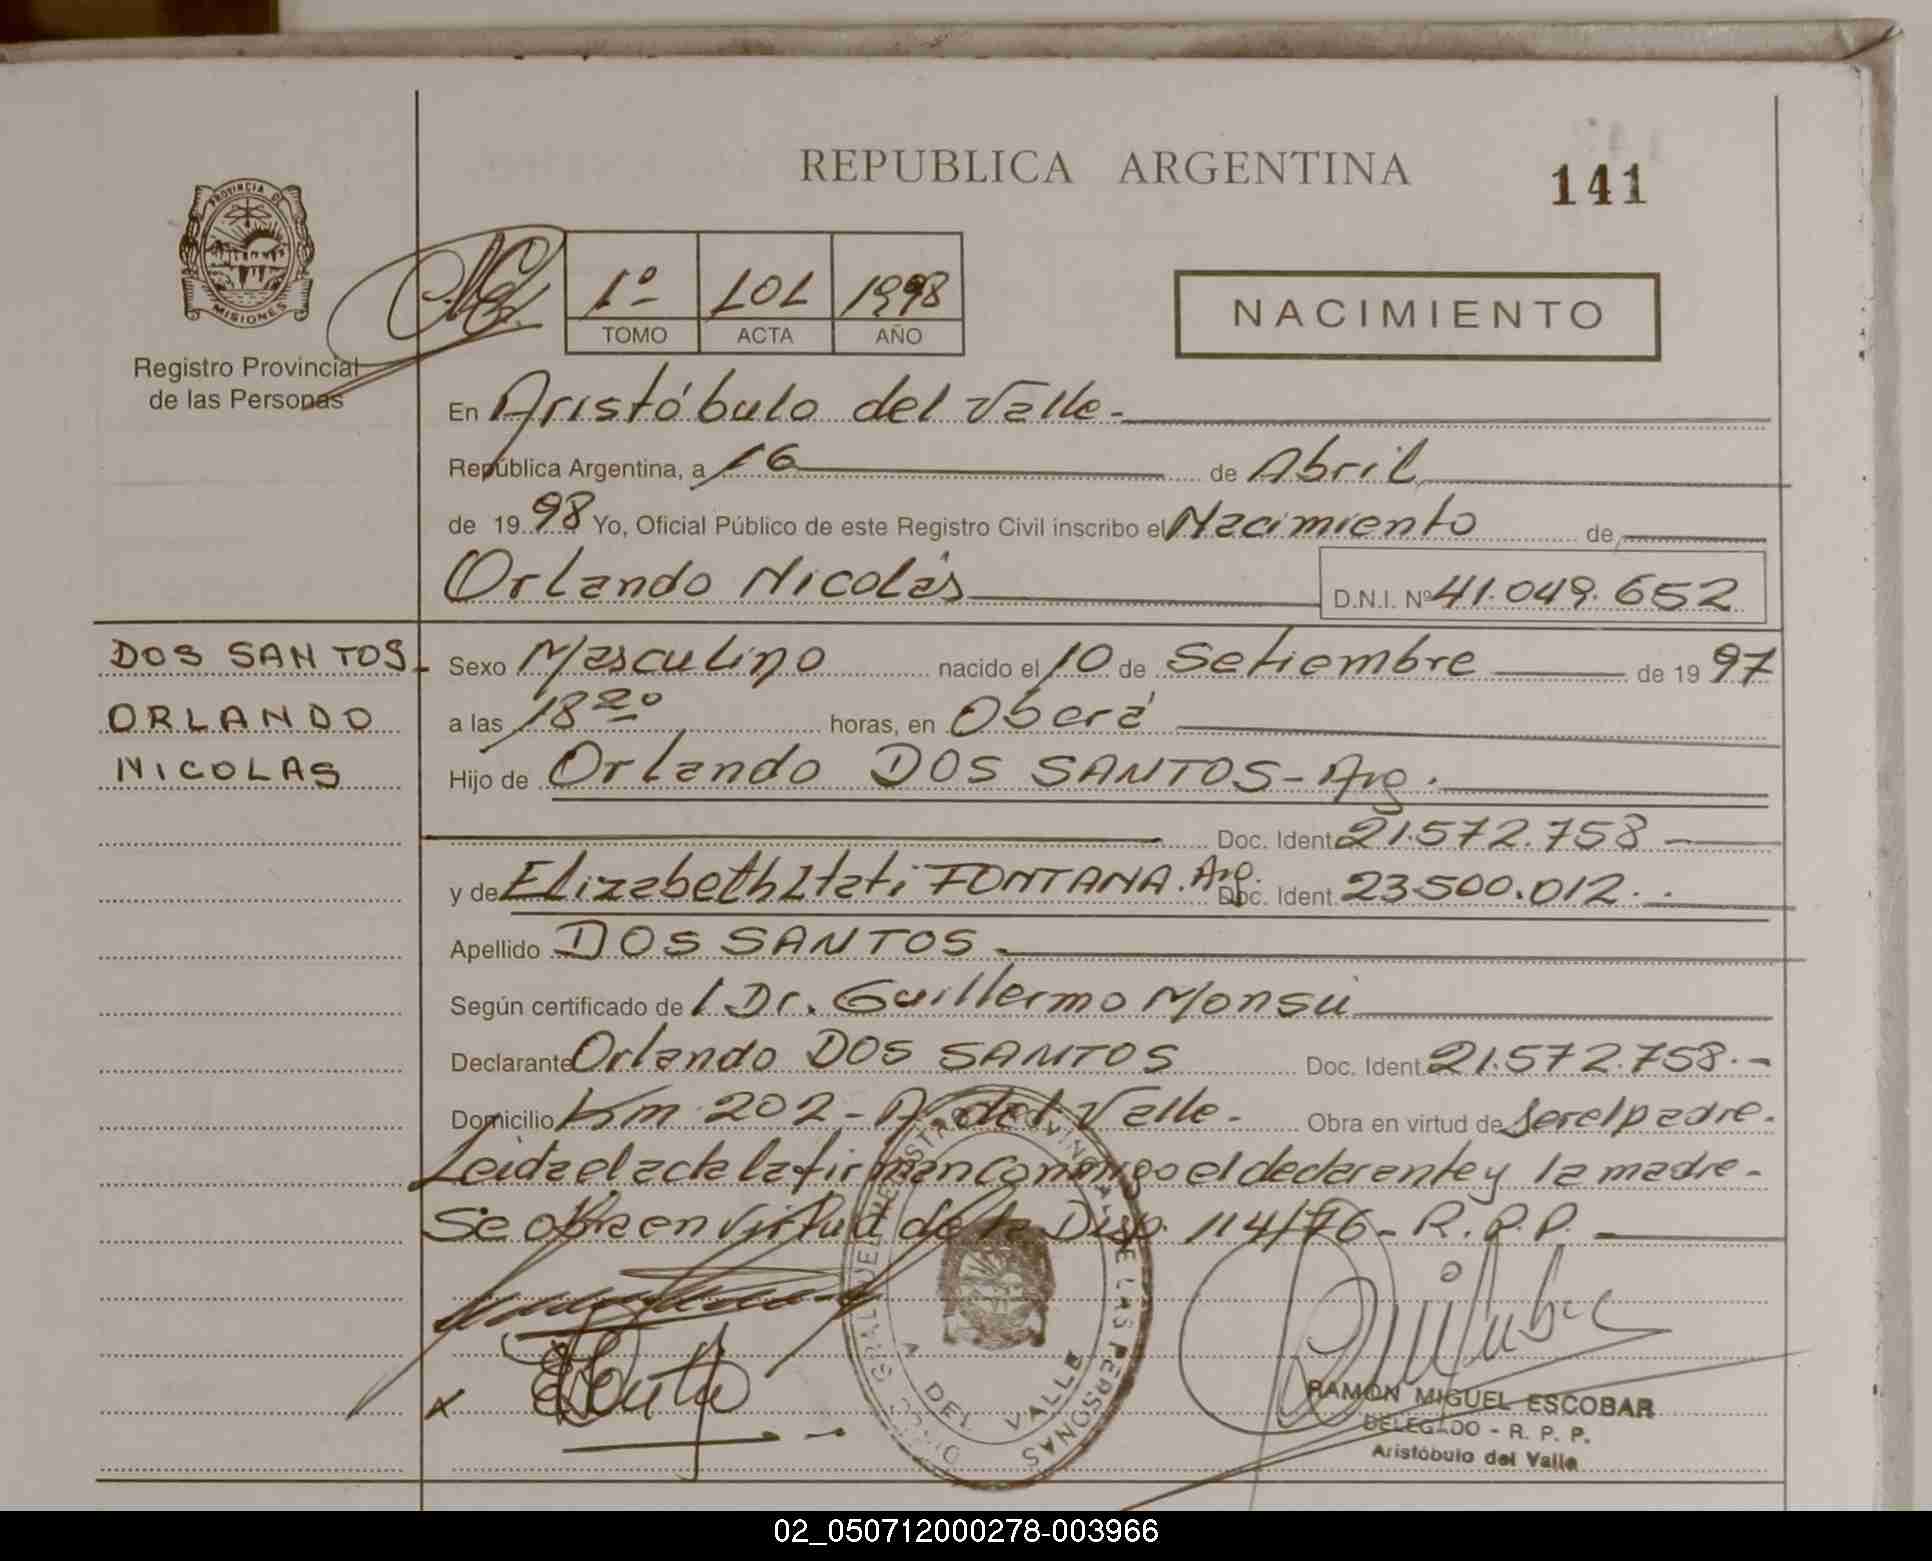 REPUBLICA ARGENTINA
141
PROVINCIA DE MISIONES
Registro Provincial
de las Personas
1º 101 1998
TOMO ACTA AÑO
NACIMIENTO
En Aristóbulo del Valle.-
República Argentina, a 16 de Abril
de 1998 Yo, Oficial Público de este Registro Civil inscribo el Nacimiento de
Orlando Nicolás D.N.I. Nº 41.049.652
DOS SANTOS.
ORLANDO
NICOLAS
Sexo Masculino nacido el 10 de Setiembre de 1997
a las 18 20 horas, en Oberá
Hijo de Orlando DOS SANTOS - Arg.
Doc. Ident. 21.572.758
y de Elizabeth Itati FONTANA. Arg. Doc. Ident. 23.500.012.
Apellido DOS SANTOS
Según certificado de / Dr. Guillermo Monsú
Declarante Orlando DOS SANTOS Doc. Ident. 21.572.758.-
Domicilio Km 202 - A. del Valle - Obra en virtud de ser el padre.
Leida el acta la firman conmigo el declarante y la madre-
Se obra en virtud de la Disp. 114/76 - R.P.P.
A DEL VALLE
RAMON MIGUEL ESCOBAR
DELEGADO - R. P. P.
Aristóbulo del Valle
02_050712000278-003966